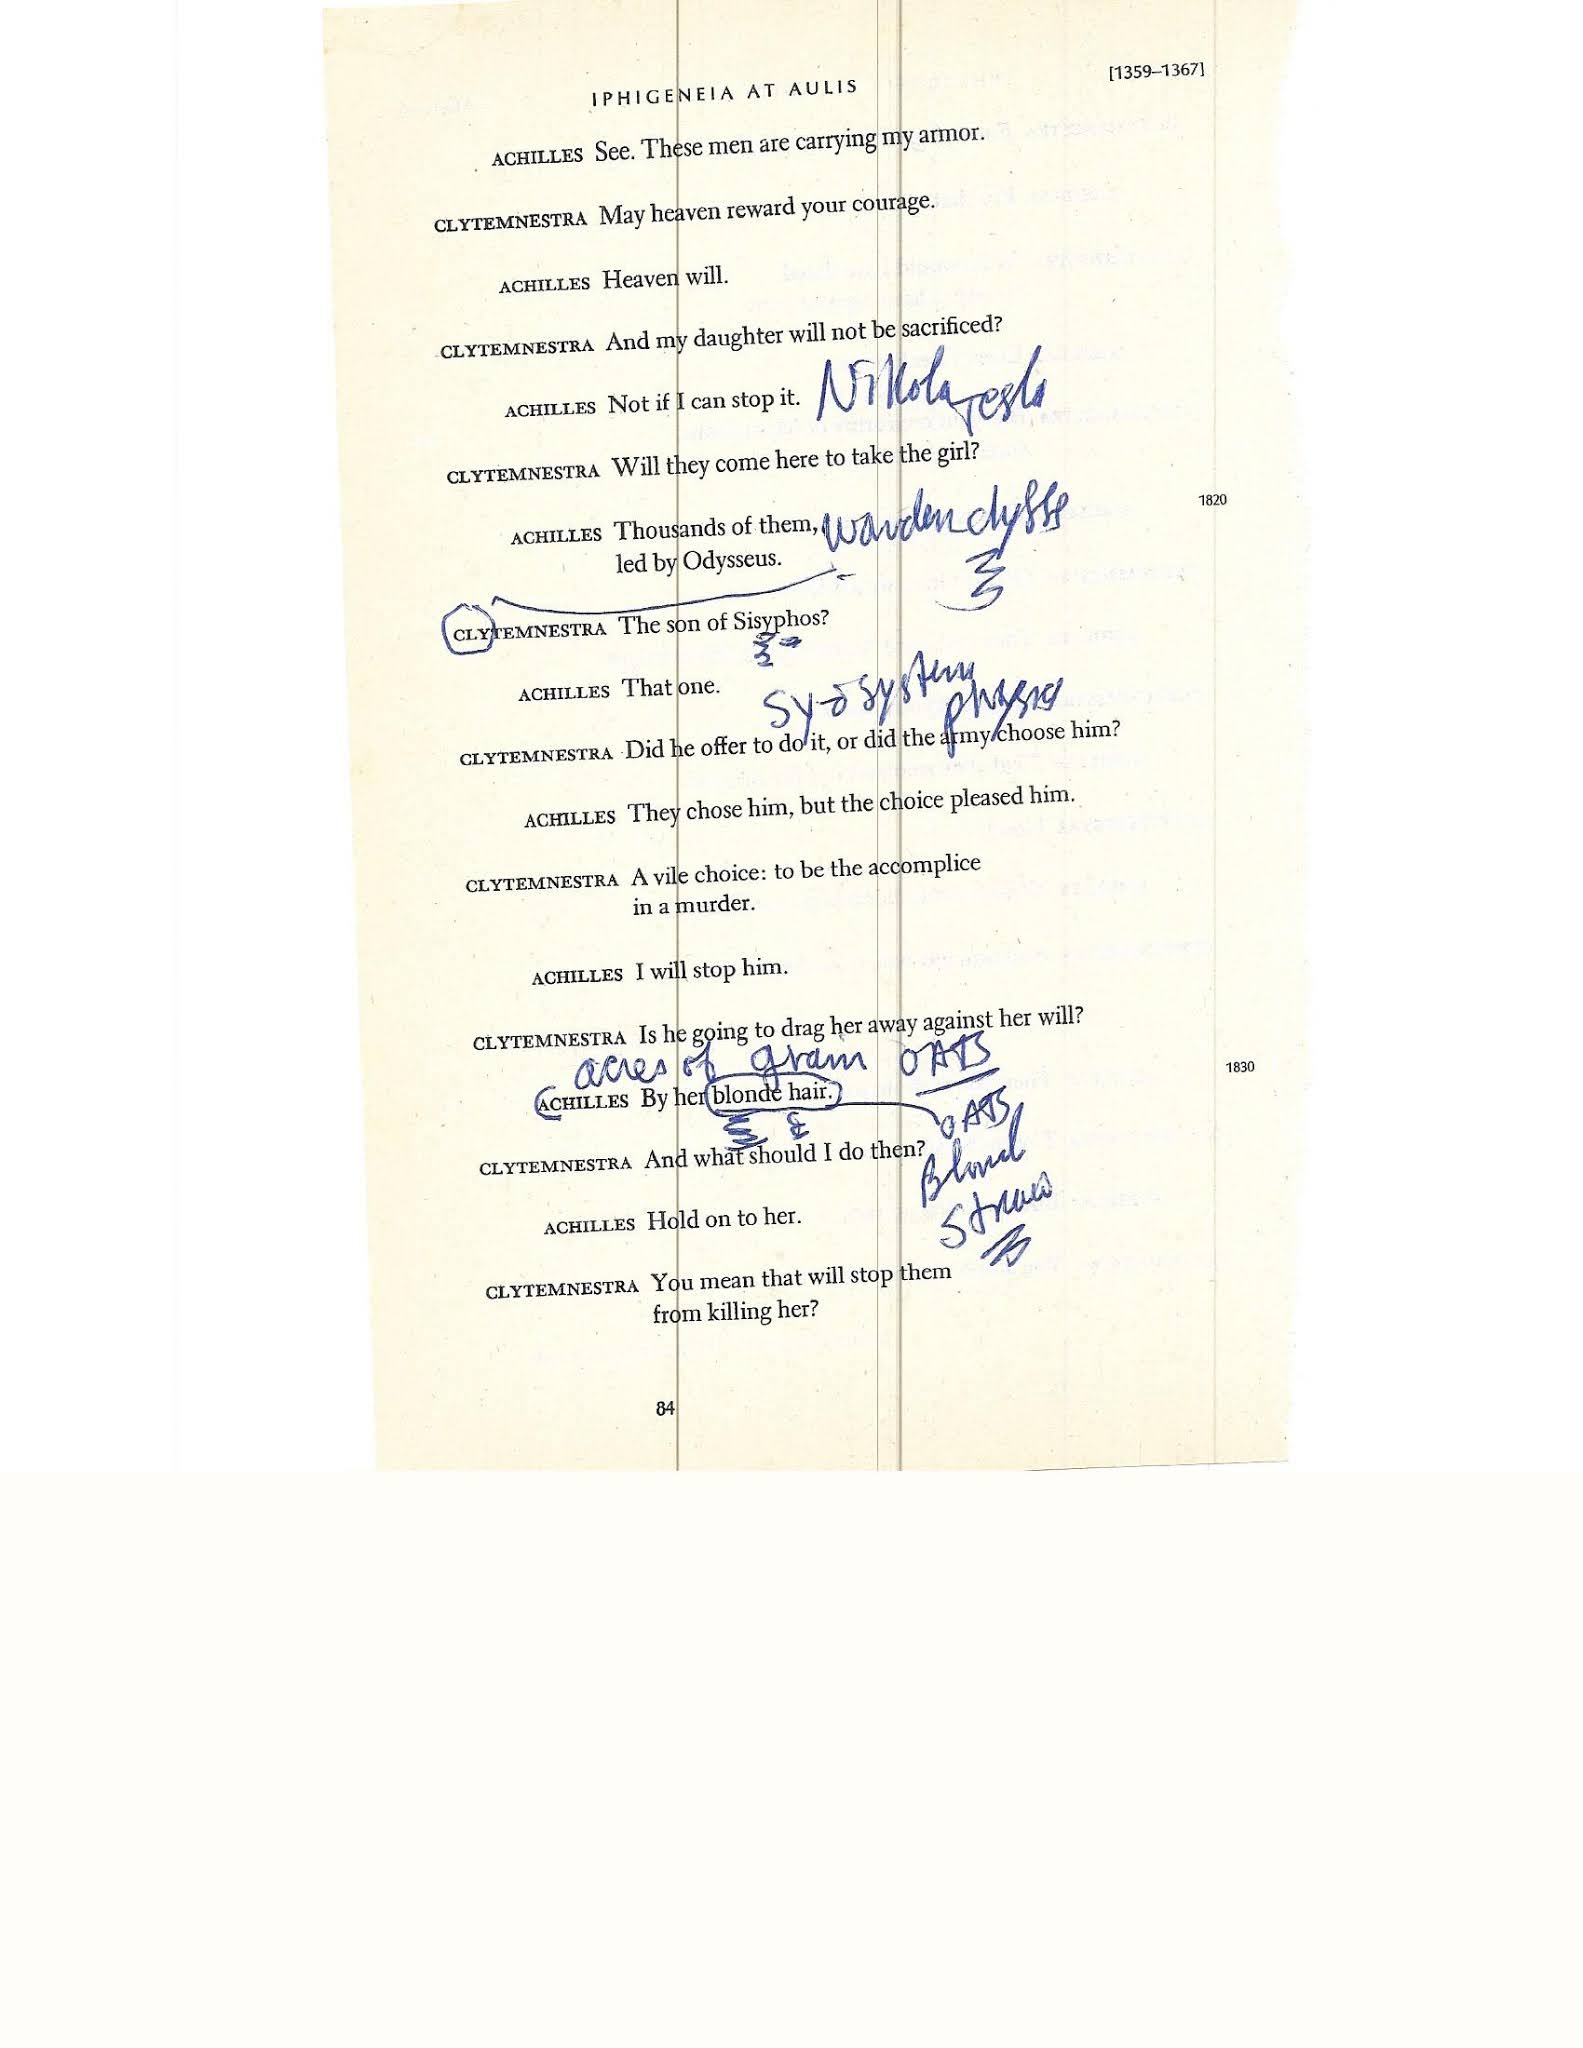 IPHIGENEIA AT AULIS [1359–1367]
ACHILLES See. These men are carrying my armor.
CLYTEMNESTRA May heaven reward your courage.
ACHILLES Heaven will.
CLYTEMNESTRA And my daughter will not be sacrificed?
ACHILLES Not if I can stop it. Nikola Tesla
CLYTEMNESTRA Will they come here to take the girl?
ACHILLES Thousands of them, 1820
led by Odysseus.
CLYTEMNESTRA The son of Sisyphos?
ACHILLES That one.
system
physics
CLYTEMNESTRA Did he offer to do it, or did the army choose him?
ACHILLES They chose him, but the choice pleased him.
CLYTEMNESTRA A vile choice: to be the accomplice
in a murder.
ACHILLES I will stop him.
CLYTEMNESTRA Is he going to drag her away against her will?
acres of grain OATS
ACHILLES By her blonde hair. 1830
OATS
CLYTEMNESTRA And what should I do then?
Blond
Straw
ACHILLES Hold on to her.
CLYTEMNESTRA You mean that will stop them
from killing her?
84